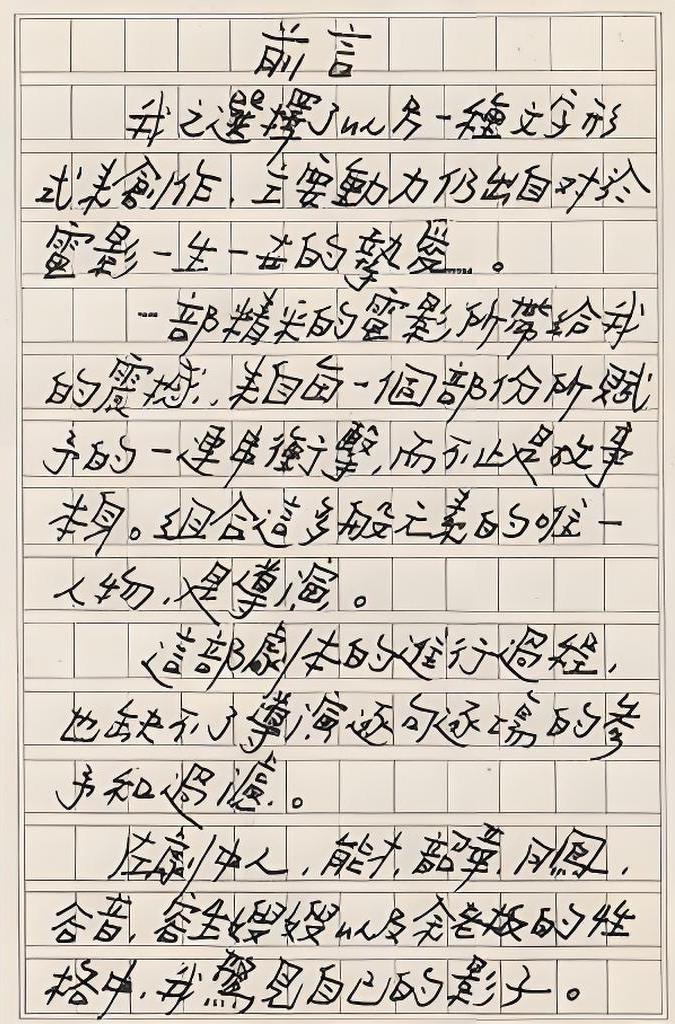 前言
我之選擇了以另一種文字形
式來創作，主要動力仍出自对於
電影一生一世的摯愛……。
一部精采的電影所帶給我
的震撼，來自每一個部份所賦
予的一連串衝擊，而不止是故事
本身。組合這多般元素的唯一
人物，是導演。
這部劇本的進行過程，
也缺不了導演逐句逐場的參
予和過濾。
在劇中人，能才，韶華，月鳳，
谷音，容生嫂嫂以及余老板的性
格中，我驚見自己的影子。